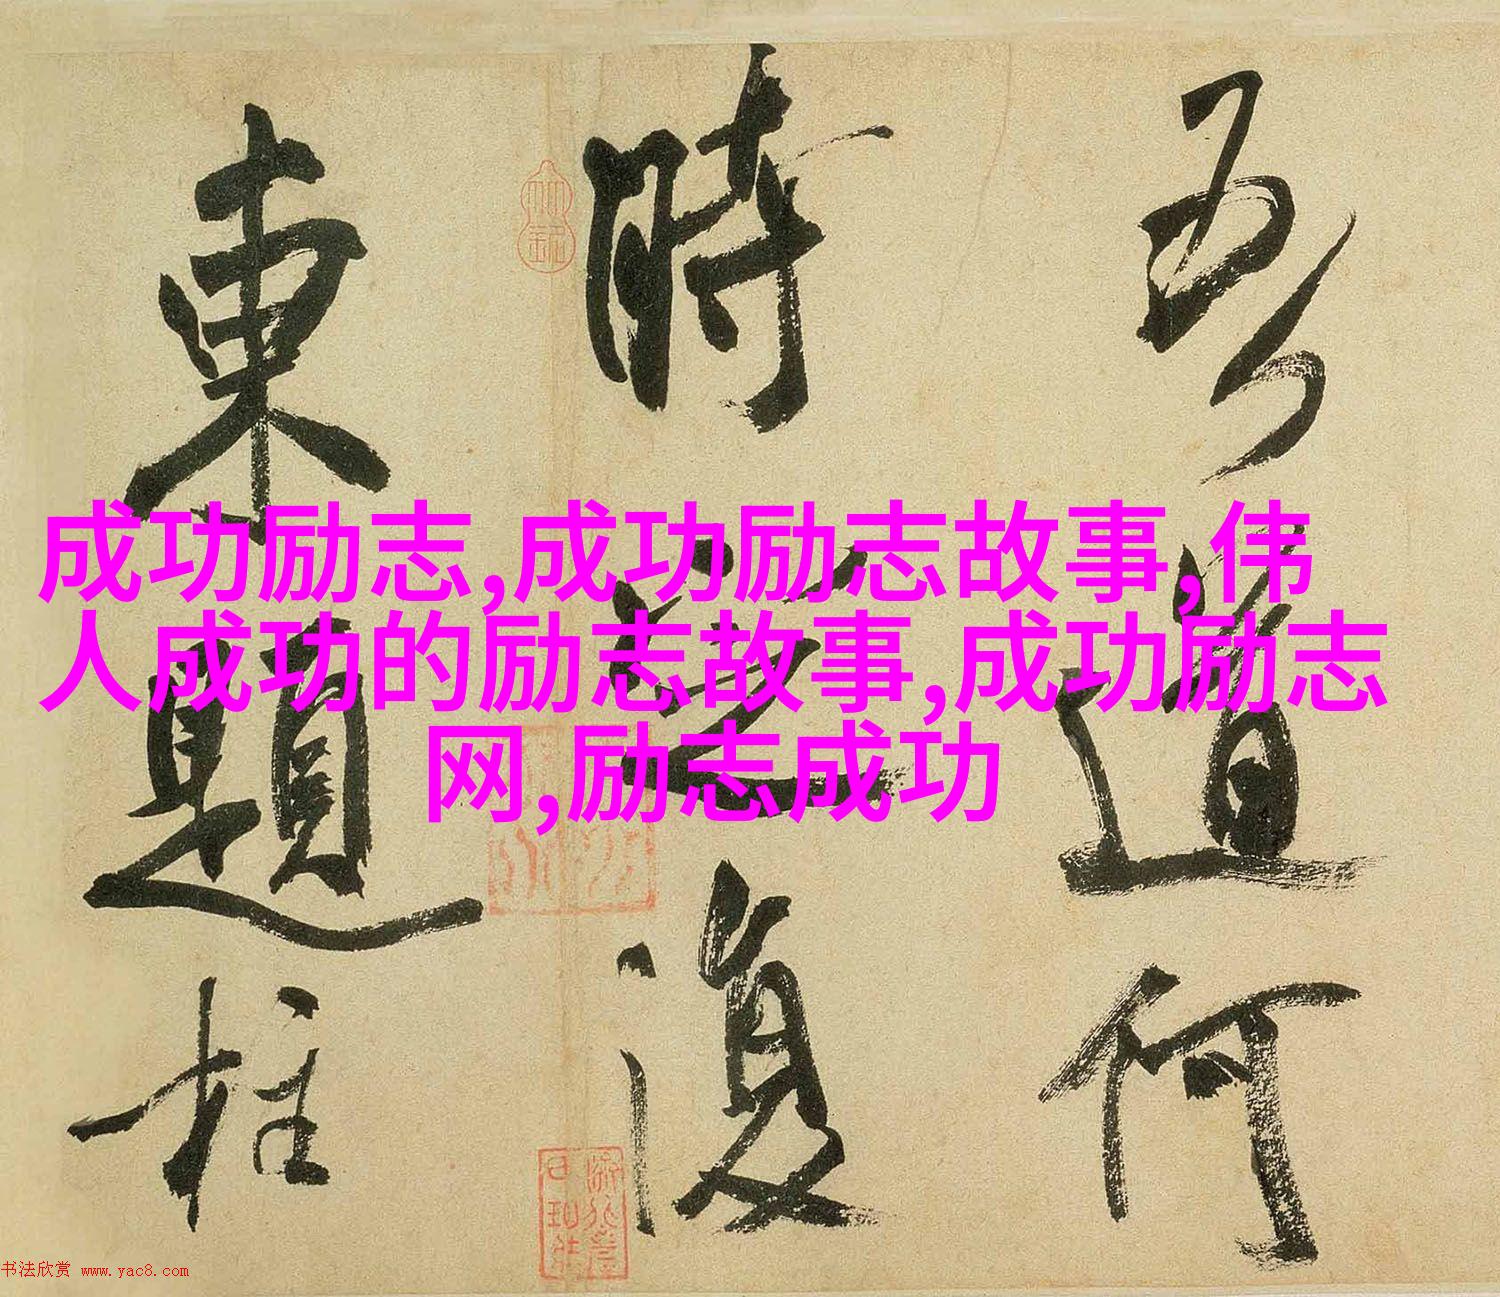 吾道何
時復
東題柱
成功励志,成功励志故事,伟
人成功的励志故事,成功励志
网,励志成功
书法欣赏 www.yac8.com